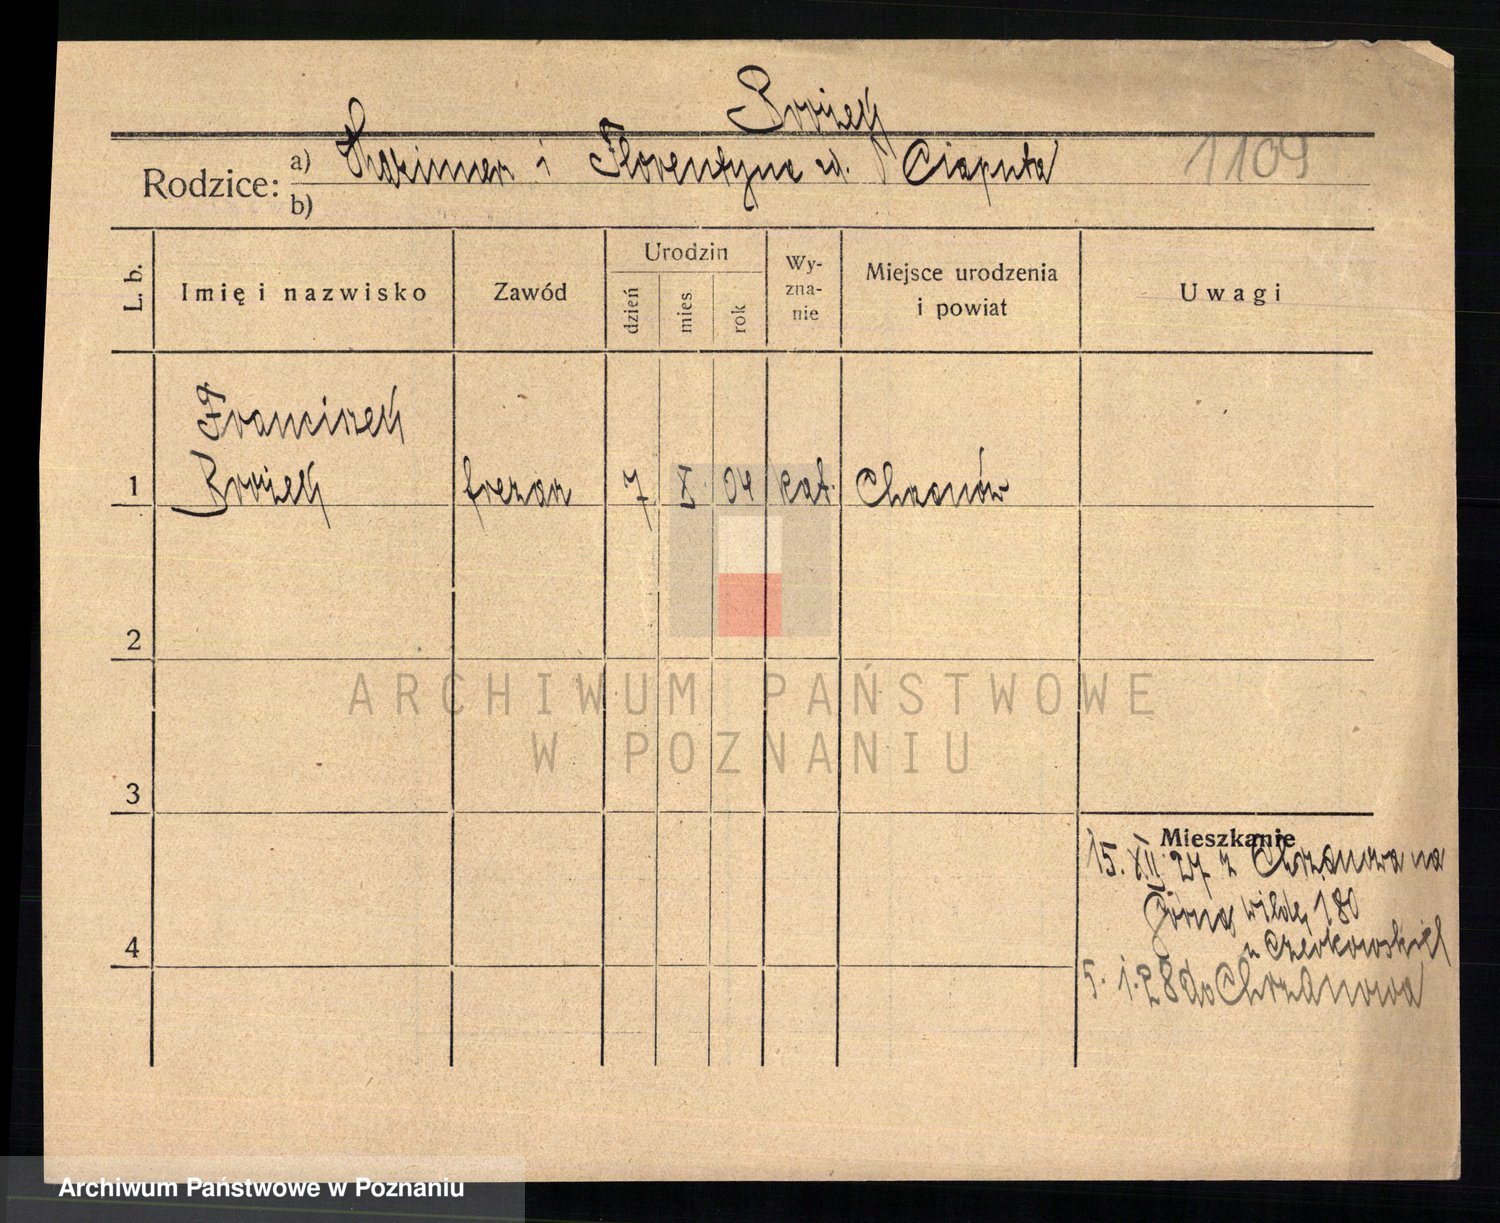 Brożek
Rodzice: a) Kazimierz i Florentyna zd. Ciaputa 1109
b)
L. b. Imię i nazwisko Zawód Urodzin dzień mies rok Wy-zna-nie Miejsce urodzenia i powiat Uwagi
Franciszek
1 Brożek frezar 7 X 04 kat. Chrzanów
2
ARCHIWUM PAŃSTWOWE
W POZNANIU
3
Mieszkanie
15. XII 27 z Chrzanowa na
Górna Wilda 180
4 u Czerkowskich
5. 1. 28 do Chrzanowa
Archiwum Państwowe w Poznaniu